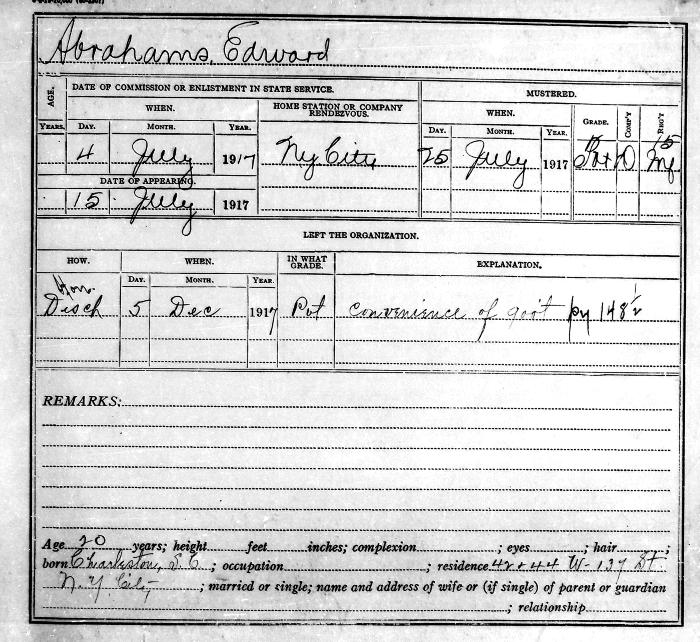 Abrahams, Edward
AGE. DATE OF COMMISSION OR ENLISTMENT IN STATE SERVICE. MUSTERED.
WHEN. HOME STATION OR COMPANY RENDEZVOUS. WHEN. GRADE. COMP'Y REG'T
YEARS. DAY. MONTH. YEAR. DAY. MONTH. YEAR.
4 July 1917 Ny City 25 July 1917 Pvt D 15 
DATE OF APPEARING.
15 July 1917
LEFT THE ORGANIZATION.
HOW. WHEN. IN WHAT GRADE. EXPLANATION.
DAY. MONTH. YEAR.
Hon.
Disch 5 Dec 1917 Pvt convenience of gov't py 148½
REMARKS:
Age 20 years; height feet inches; complexion ; eyes ; hair ;
born Charleston, S.C. ; occupation ; residence 42 & 44 W-137 St
N.Y City ; married or single; name and address of wife or (if single) of parent or guardian
; relationship